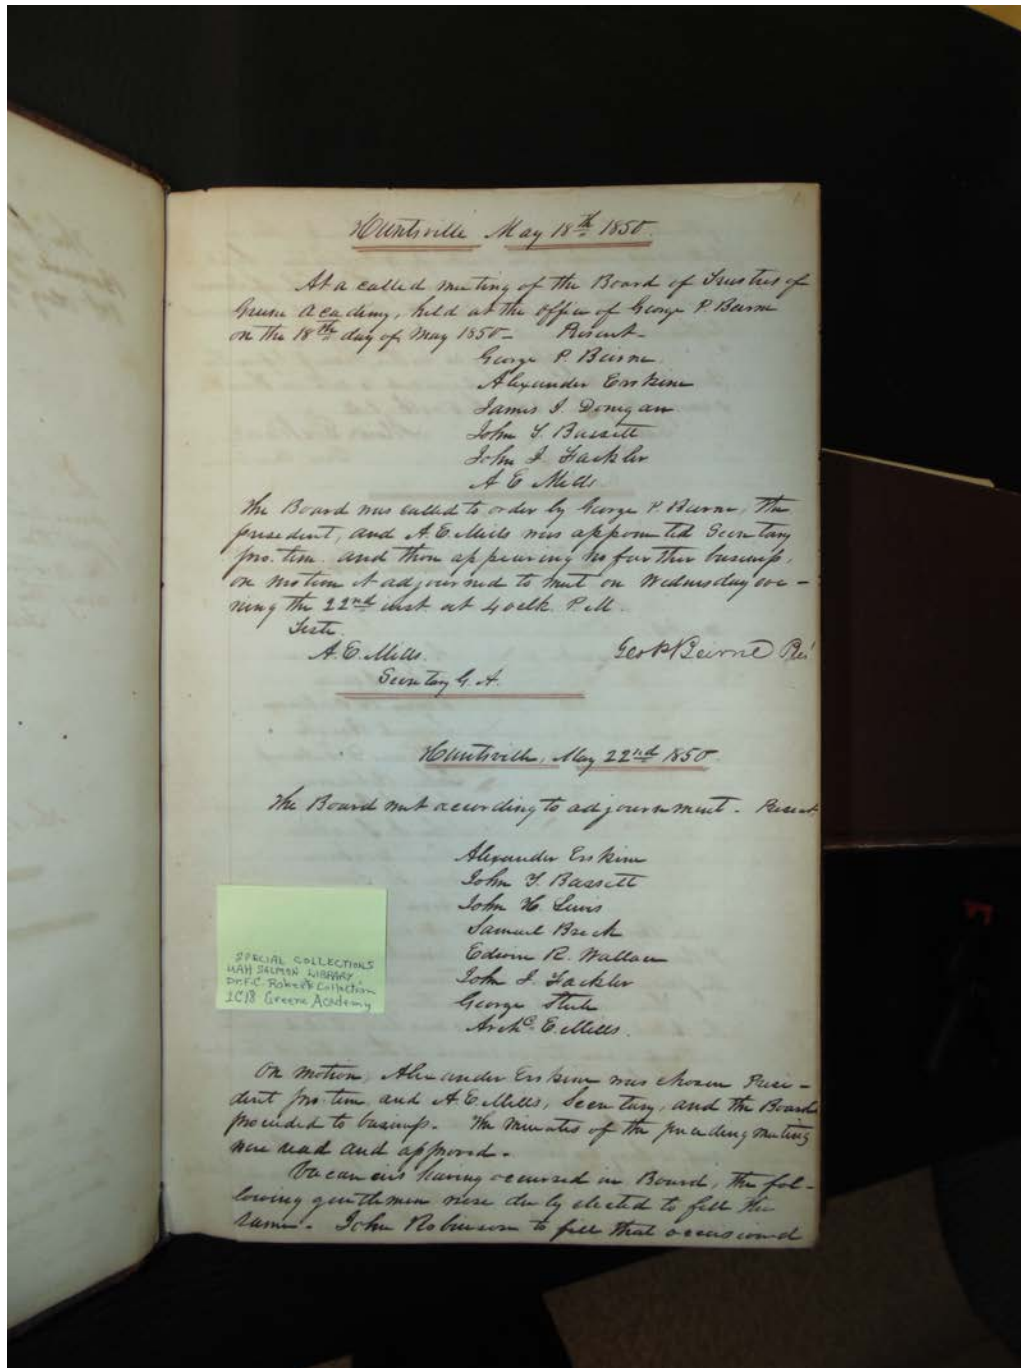 Huntsville May 18th 1850.
At a called meeting of the Board of Trustees of
Greene Academy, held at the office of George P. Beirne
on the 18th day of May 1850 - Present -
George P. Beirne
Alexander Erskine
James J. Donegan
John Y. Bassett
John J. Fackler
A E Mills.
The Board was called to order by George P. Beirne, the
president, and A. E. Mills was appointed Secretary
pro. tem. and there appearing no further business,
on motion it adjourned to meet on Wednesday eve-
ning the 22nd inst at 4 oclk. P.M.
Teste.
A. E. Mills.
Geo P Beirne
Secretary G. A.
Huntsville, May 22nd 1850.
The Board met according to adjournment - Present.
Alexander Erskine
John Y. Bassett
John H. Lewis
Samuel Breck
Edwin R. Wallace
John J. Fackler
George Steele
Archd. E. Mills.
SPECIAL COLLECTIONS
UAH SALMON LIBRARY
Dr. F.C. Roberts Collection
1C18 Greene Academy
On motion, Alexander Erskine was chosen Presi-
dent pro. tem. and A. E. Mills, Secretary, and the Board
proceeded to business. The minutes of the preceding meeting
were read and approved -
Vacancies having occurred in Board, the fol-
lowing gentlemen were duly elected to fill the
same - John Robinson to fill that occasioned